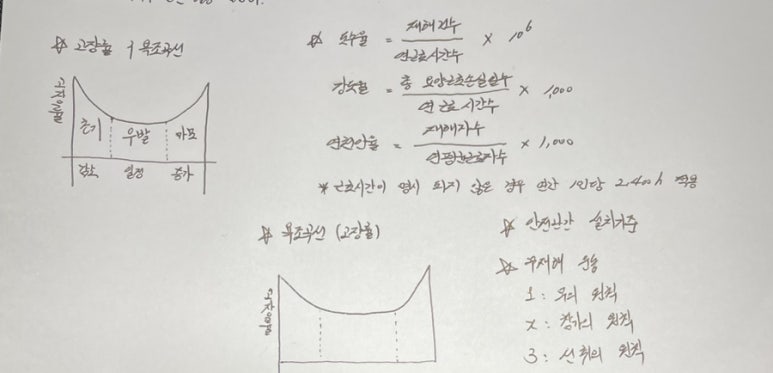 ☆ 고장률 욕조곡선
고장률
초기 우발 마모
감소 일정 증가
☆ 도수율 = 재해건수 / 연근로시간수 × 10⁶
강도율 = 총 요양근로손실일수 / 연근로시간수 × 1,000
연천인율 = 재해자수 / 연평균근로자수 × 1,000
* 근로시간이 명시 되지 않은 경우 연간 1인당 2,400h 적용
☆ 욕조곡선 (고장률)
☆ 안전난간 설치기준
☆ 무재해 운동
1: 무의 원칙
2: 참가의 원칙
3: 선취의 원칙